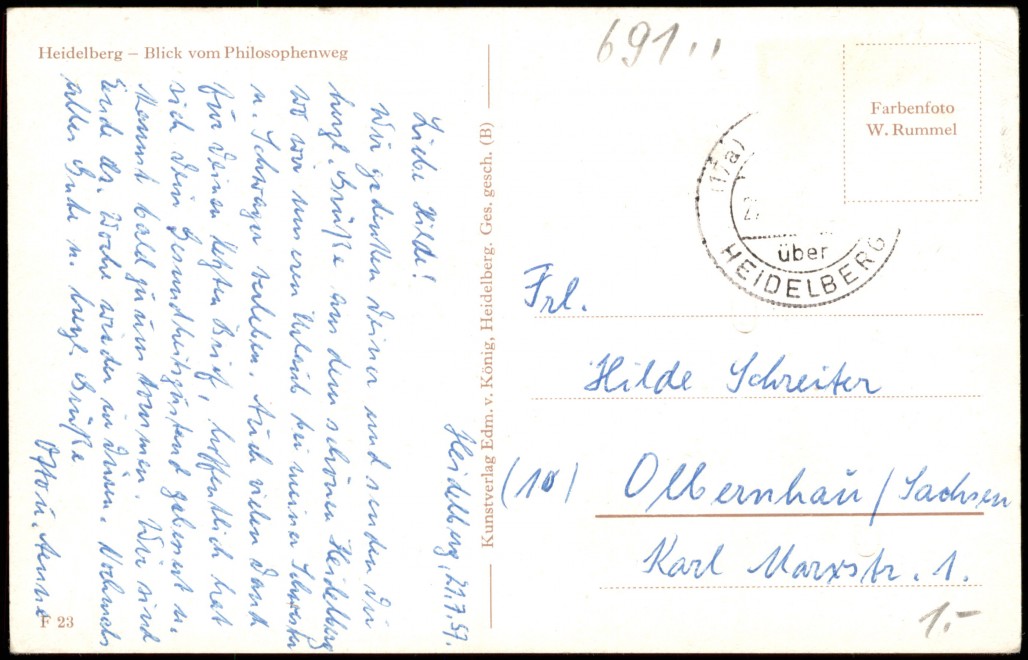 Heidelberg – Blick vom Philosophenweg
Heidelberg, 21.7.59.
Liebe Hilde!
Wir gedenken Deiner und senden Dir
herzl. Grüße von dem schönen Heidelberg
wo wir unseren Urlaub bei meiner Schwester
u. Schwager verleben. Auch vielen Dank
für Deinen letzten Brief, hoffentlich hat
sich Dein Gesundheitszustand gebessert u.
kannst bald zu uns kommen. Wir sind
Ende ds. Woche wieder in Nochmals
alles Gute u. herzl. Grüße
u. Aenne
F 23
Kunstverlag Edm. v. König, Heidelberg. Ges. gesch. (B)
691..
Farbenfoto
W. Rummel
(17a)
über
HEIDELBERG
Frl.
Hilde Schreiter
(10) Olbernhau/Sachsen
Karl Marxstr. 1.
1.-